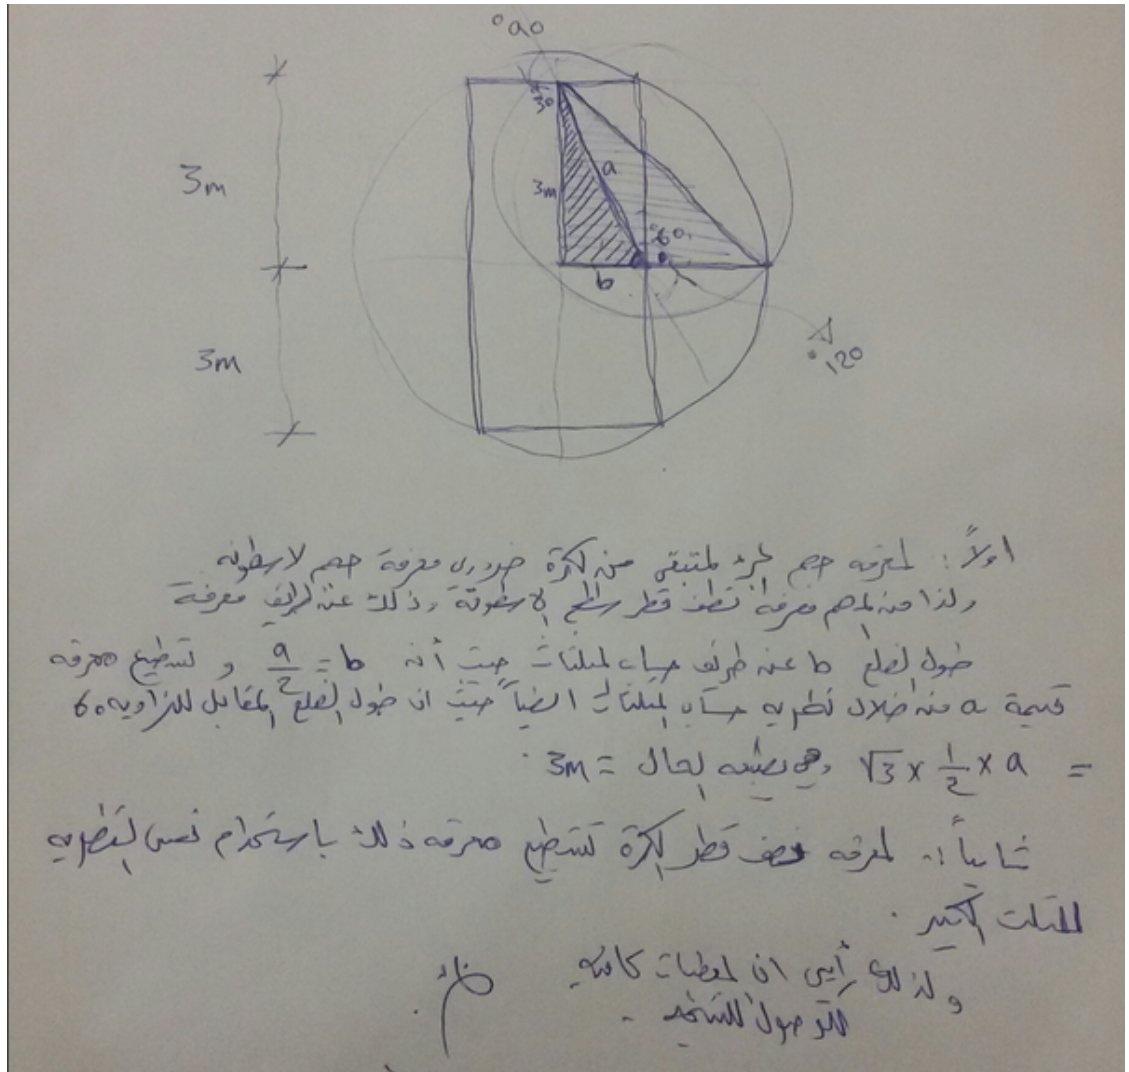 °90
3m
30
3m
a
60°
b
°120
3m
اولاً : لمعرفه حجم الجزء المتبقي من الكرة ضروري معرفة حجم الاسطوانه
ولذا من المهم معرفة نصف قطر سطح الاسطوانة وذلك عن طريق معرفة
طول الضلع b عن طريق حساب المثلثات حيث أن b = a/2 و تستطيع معرفه
قيمة a من خلال نظريه حساب المثلثات ايضاً حيث ان طول الضلع المقابل للزاويه 60
= a × 1/2 × √3 وهي بطبيعه الحال = 3m .
ثانياً :. لمعرفه نصف قطر الكرة تستطيع معرفه ذلك باستخدام نفس النظريه
للمثلث الكبير .
ولذلك رأيي ان المعطيات كافيه
للوصول للنتيجه .